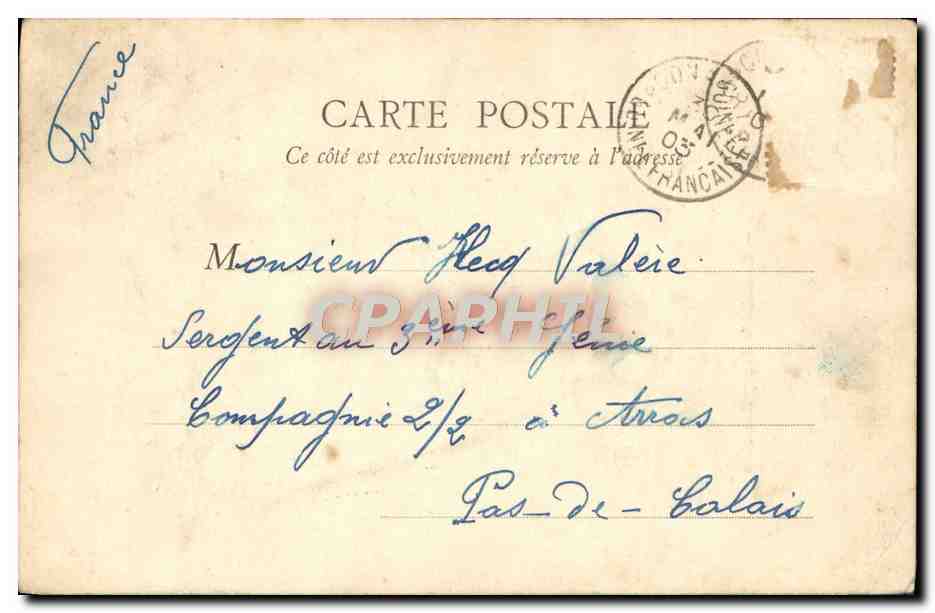 France
CARTE POSTALE
Ce côté est exclusivement réservé à l'adresse
GUINÉE FRANÇAISE
MAI
03
Monsieur Hecq Valère
Sergent au 3ème Génie
CPAPHIL
Compagnie 2/2 à Arras
Pas-de-Calais